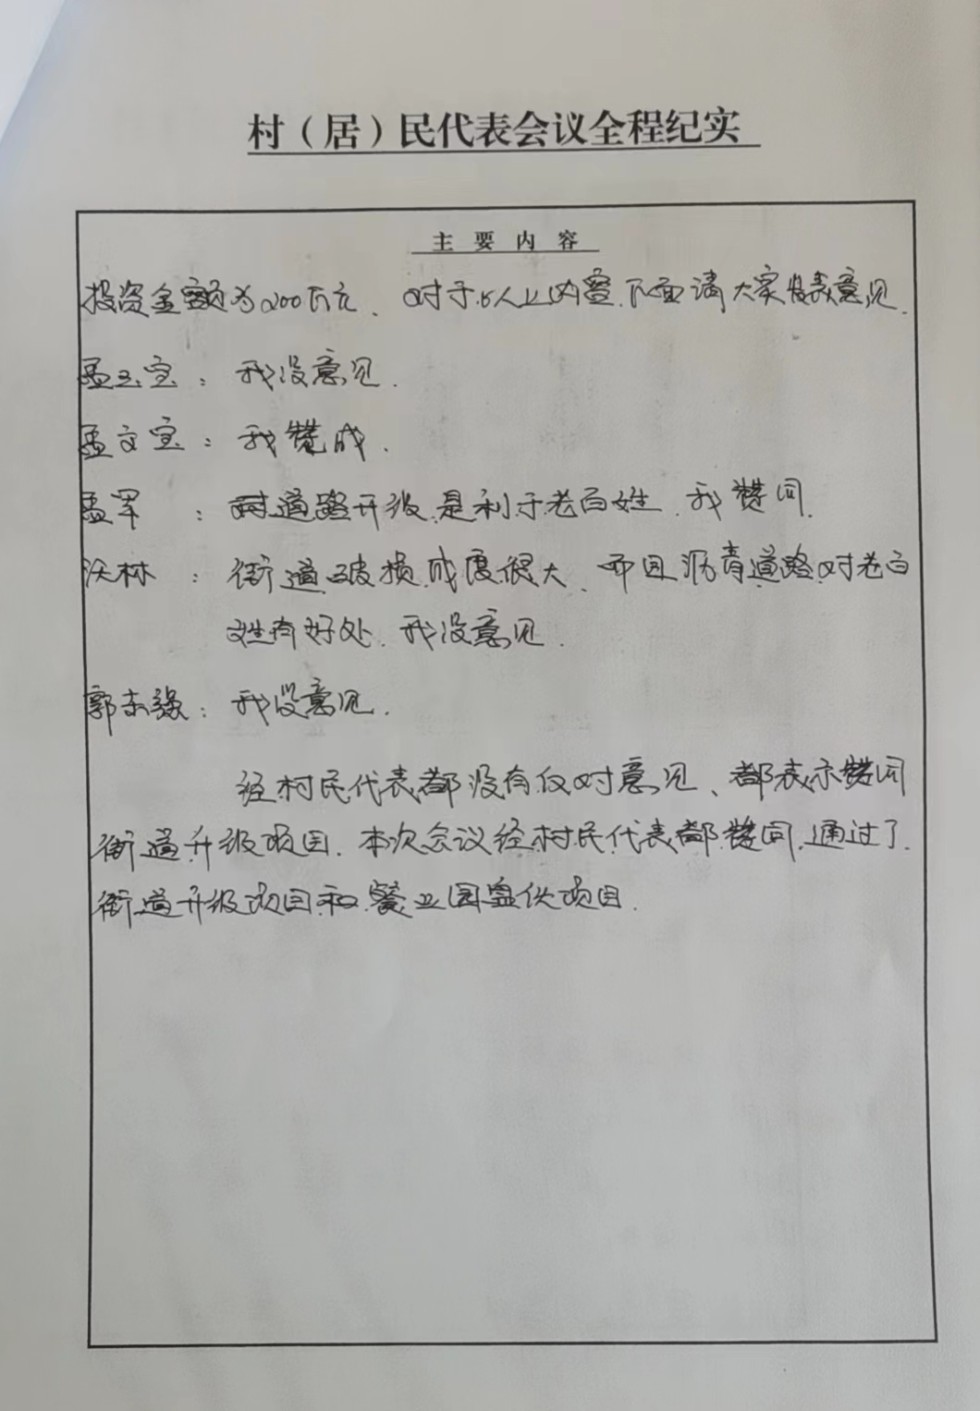 村（居）民代表会议全程纪实
主要内容
投资金额为200万元、对于以上内容、下面请大家发表意见.
孟玉宝：我没意见.
孟文宝：我赞成.
孟军：对道路升级、是利于老百姓、我赞同.
沃林：街道破损成度很大、而且沥青道路对老百
姓有好处、我没意见.
郭志强：我没意见.
经村民代表都没有反对意见、都表示赞同
街道升级项目.本次会议经村民代表都赞同、通过了.
街道升级项目和业园项目.